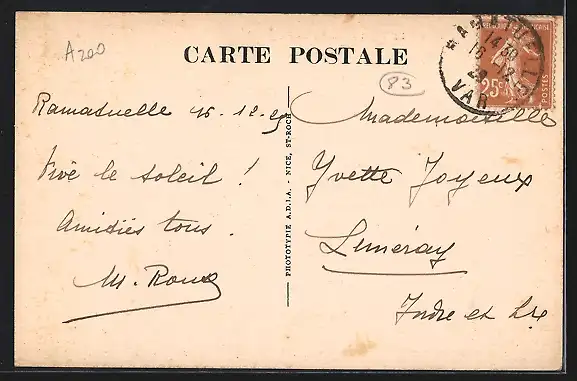 A200
CARTE POSTALE
RAMATUELLE
14 30
16 - 12
VAR
25c
POSTES
83
Ramatuelle 15-12-
Vive le soleil !
Amitiés tous.
M. Roux
PHOTOTYPIE A.D.I.A. - NICE, ST-ROCH
Mademoiselle
Yvette Joyeux
Limeray
Indre et Lre